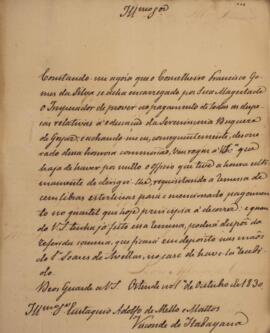 Illmo Snr
Constando me agora que o Conselheiro Francisco Go-
mes da Silva se acha encarregado por Sua Magestade
O Imperador de prover ao pagamento de todas as despe-
zas relativas á educação da Serenissima Duqueza
de Goyaz; e achando me eu, conseguintemente, deso-
rado dessa honrosa commissão, vou rogar a V.S. que
haja de haver por nullo o officio que tive a honra ulti-
mamente de dirigir-lhe, requisitando a remessa de
cem libras esterlinas para o mencionado pagamen-
to no quartel que hoje principia a decorrer: e quan-
do V.S. tenha já feito essa remessa, poderá dispor da
referida somma, que ficará em deposito nas mãos
de Soares de Avellar, no caso de have-la recebi-
do.
Deos Guarde a V.S. Ostende no 1º de Outubro de 1830.
Illmo Snr Eustaquio Adolfo de Mello Mattos
Visconde de Itabayana